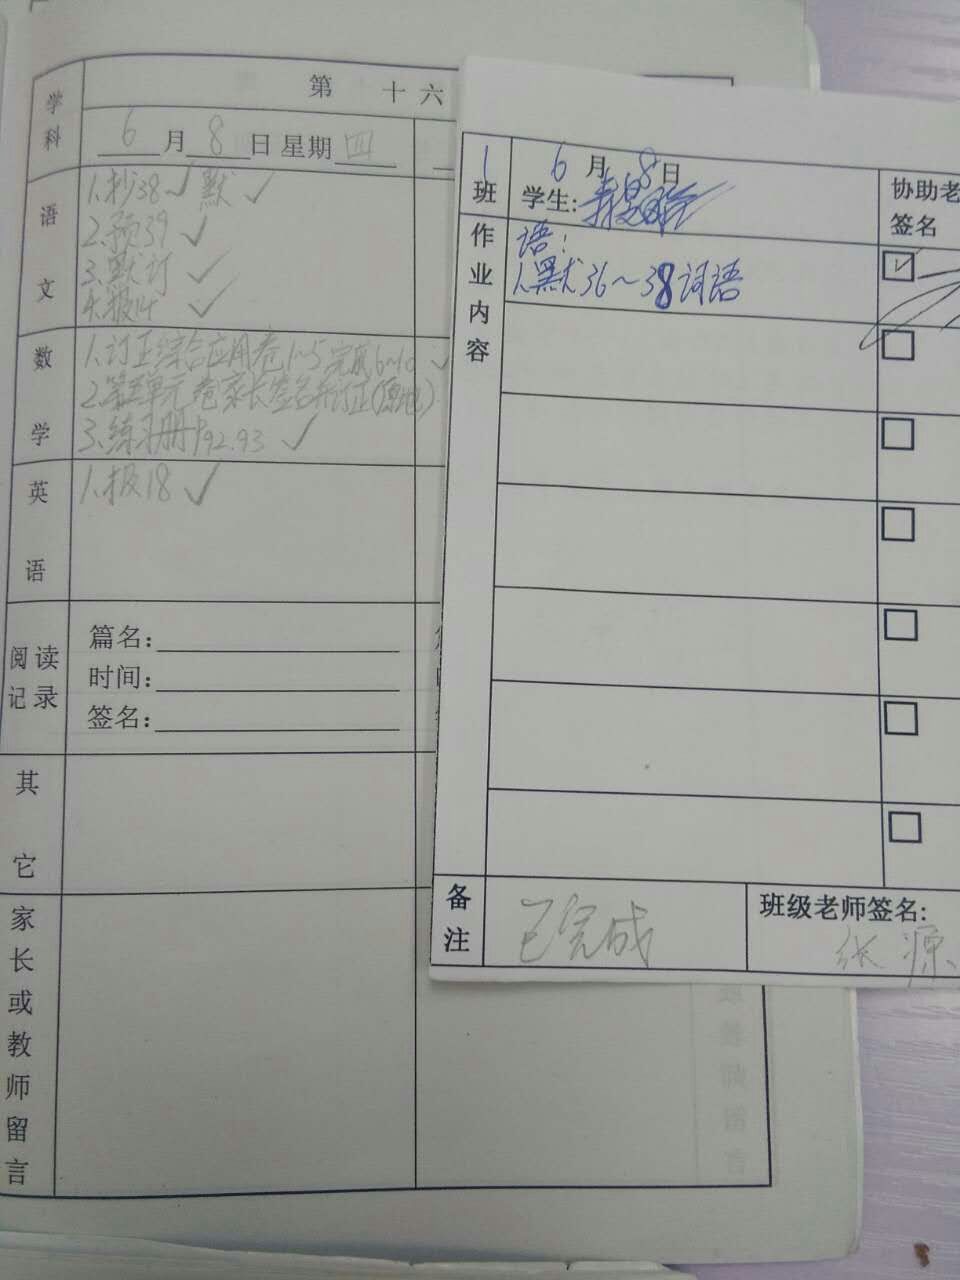 学科
第 十六
6月8日 星期四
语文
1.抄38 ✓ 默 ✓
2.预39 ✓
3.默订 ✓
4.报14 ✓
数学
1.订正综合应用卷1~5完成6~10 ✓
2.第五单元卷家长签名并订正
3.练习册P92.93 ✓
英语
1.报18 ✓
阅读记录
篇名：
时间：
签名：
其它
家长或教师留言
1班
6月8日
学生:
协助老
签名
作业内容
语：
1.默36～38词语
备注
已完成
班级老师签名:
张源